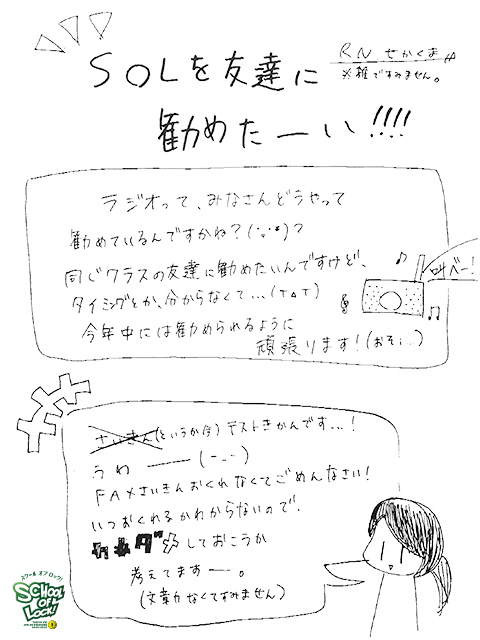 SOLを友達に
RN せかくま
※雑ですみません。
勧めたーい!!!!
ラジオって、みなさんどうやって
勧めているんですかね?
同じクラスの友達に勧めたいんですけど、
タイミングとか、分からなくて...(T△T)
今年中には勧められるように
頑張ります!(おそ...)
叫べー!
さいきん(というか今)テストきかんです...!
うわ――(-_-)
FAXさいきんおくれなくてごめんなさい!
いつおくれるかわからないので、
しておこうか
考えてますー。
(文章力なくてすみません)
スクール オブ ロック!
SCHOOL OF LOCK!